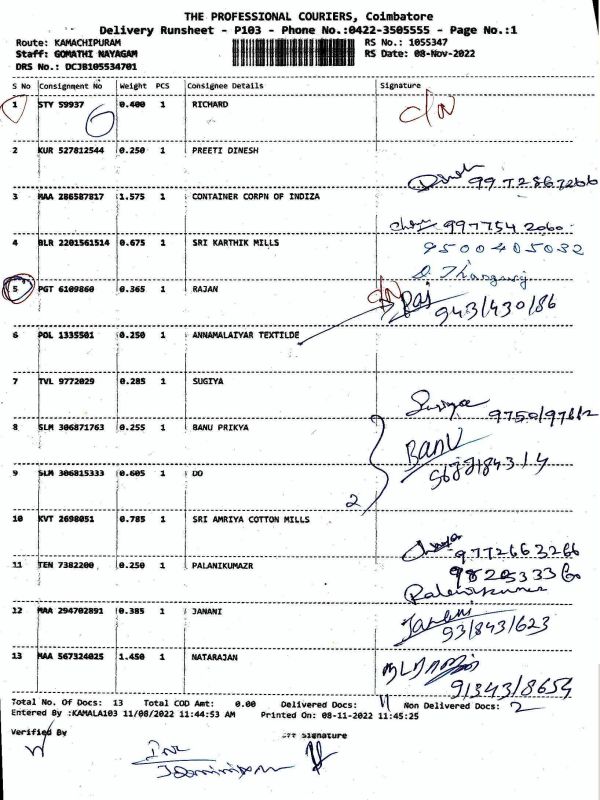 THE PROFESSIONAL COURIERS, Coimbatore
Delivery Runsheet - P103 - Phone No.:0422-3505555 - Page No.:1
Route: KAMACHIPURAM RS No.: 1055347
Staff: GOMATHI NAYAGAM RS Date: 08-Nov-2022
DRS No.: DCJB105534701
S No Consignment No Weight PCS Consignee Details Signature
1 STY 59937 0.400 1 RICHARD
2 KUR 527812544 0.250 1 PREETI DINESH
9972867266
3 MAA 286587817 1.575 1 CONTAINER CORPN OF INDIZA
9977542060
4 BLR 2201561514 0.675 1 SRI KARTHIK MILLS
9500405032
5 PGT 6109860 0.365 1 RAJAN
Raj
943/430/86
6 POL 1335501 0.250 1 ANNAMALAIYAR TEXTILDE
7 TVL 9772029 0.285 1 SUGIYA
8 SLM 306871763 0.255 1 BANU PRIKYA
BANU
9 SLM 306815333 0.605 1 DO
2
10 KVT 2698051 0.785 1 SRI AMRIYA COTTON MILLS
9772663266
11 TEN 7382200 0.250 1 PALANIKUMAZR
Palanikumar
12 MAA 294702891 0.385 1 JANANI
Janani
93/843/623
13 MAA 567324025 1.450 1 NATARAJAN
91343/8654
Total No. Of Docs: 13 Total COD Amt: 0.00 Delivered Docs: 11 Non Delivered Docs: 2
Entered By :KAMALA103 11/08/2022 11:44:53 AM Printed On: 08-11-2022 11:45:25
Verified By Signature